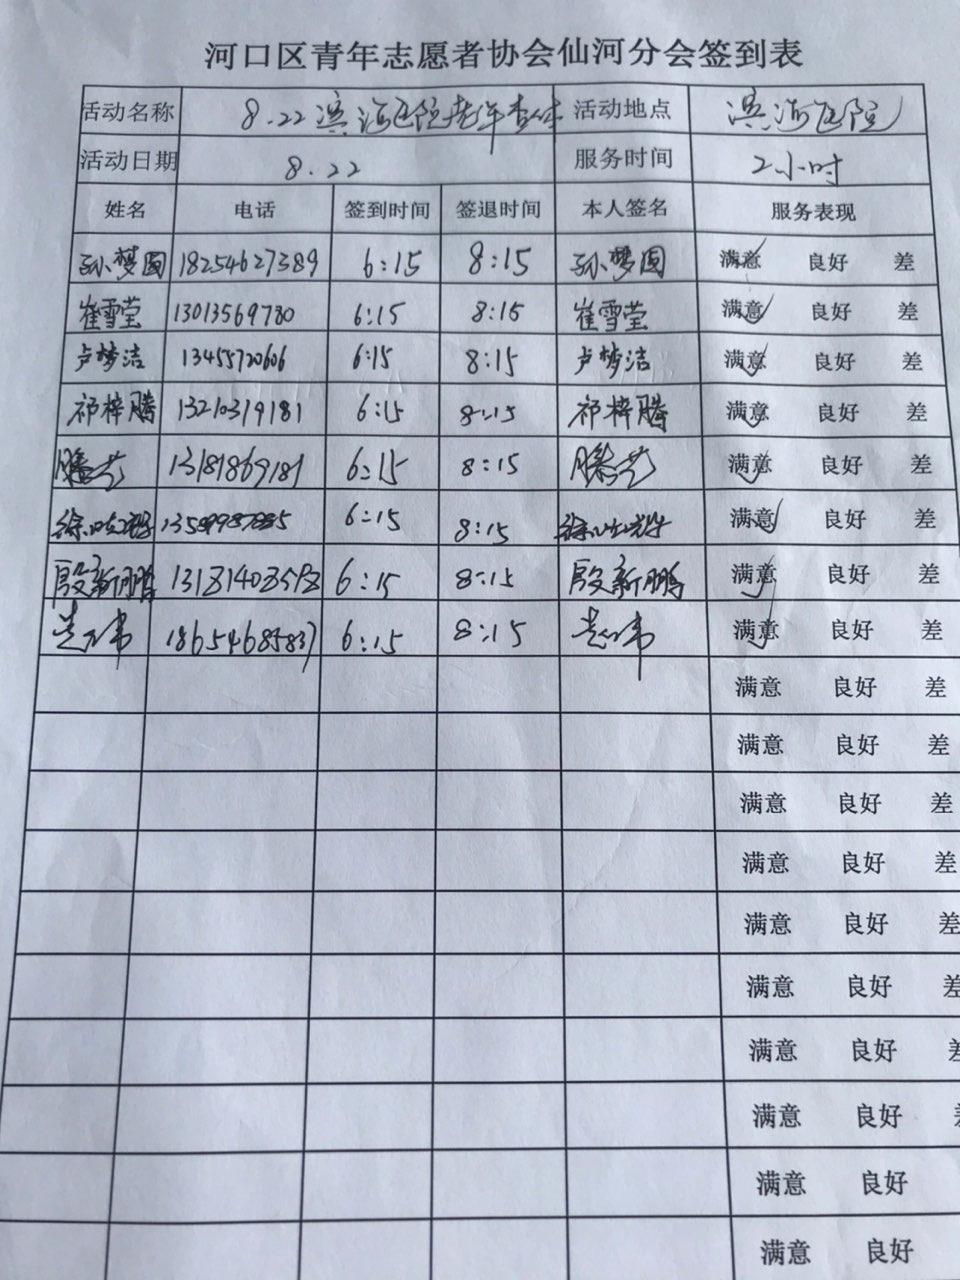 河口区青年志愿者协会仙河分会签到表
活动名称 8.22滨海医院老年查体 活动地点 滨海医院
活动日期 8.22 服务时间 2小时
姓名 电话 签到时间 签退时间 本人签名 服务表现
孙梦圆 18254627389 6:15 8:15 孙梦圆 满意 良好 差
崔雪莹 13013569780 6:15 8:15 崔雪莹 满意 良好 差
卢梦洁 13455720606 6:15 8:15 卢梦洁 满意 良好 差
祁梓腾 13210319181 6:15 8:15 祁梓腾 满意 良好 差
滕艺 13181869181 6:15 8:15 滕艺 满意 良好 差
徐 6:15 8:15 徐 满意 良好 差
殷新鹏 6:15 8:15 殷新鹏 满意 良好 差
18654685837 6:15 8:15 满意 良好 差
满意 良好 差
满意 良好 差
满意 良好 差
满意 良好 差
满意 良好 差
满意 良好 差
满意 良好
满意 良好
满意 良好
满意 良好